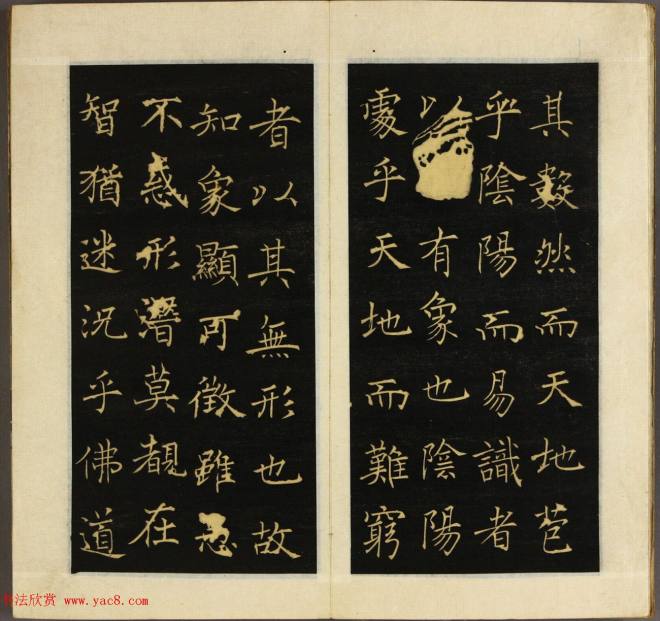 其數然而天地苞
乎陰陽而易識者
以有象也陰陽
處乎天地而難窮
者以其無形也故
知象顯可徵雖愚
不惑形潛莫覩在
智猶迷況乎佛道
书法欣赏 www.yac8.com